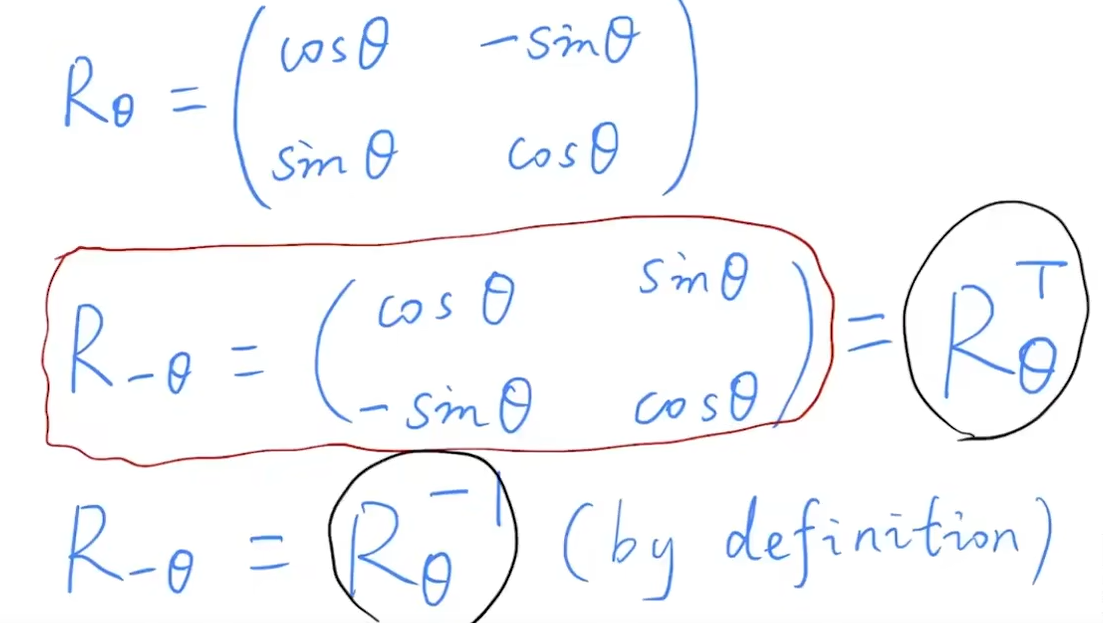 R_θ = ( cosθ −sinθ
sinθ cosθ )
R_{−θ} = ( cosθ sinθ
−sinθ cosθ ) = R_θ^T
R_{−θ} = R_θ^{−1} (by definition)